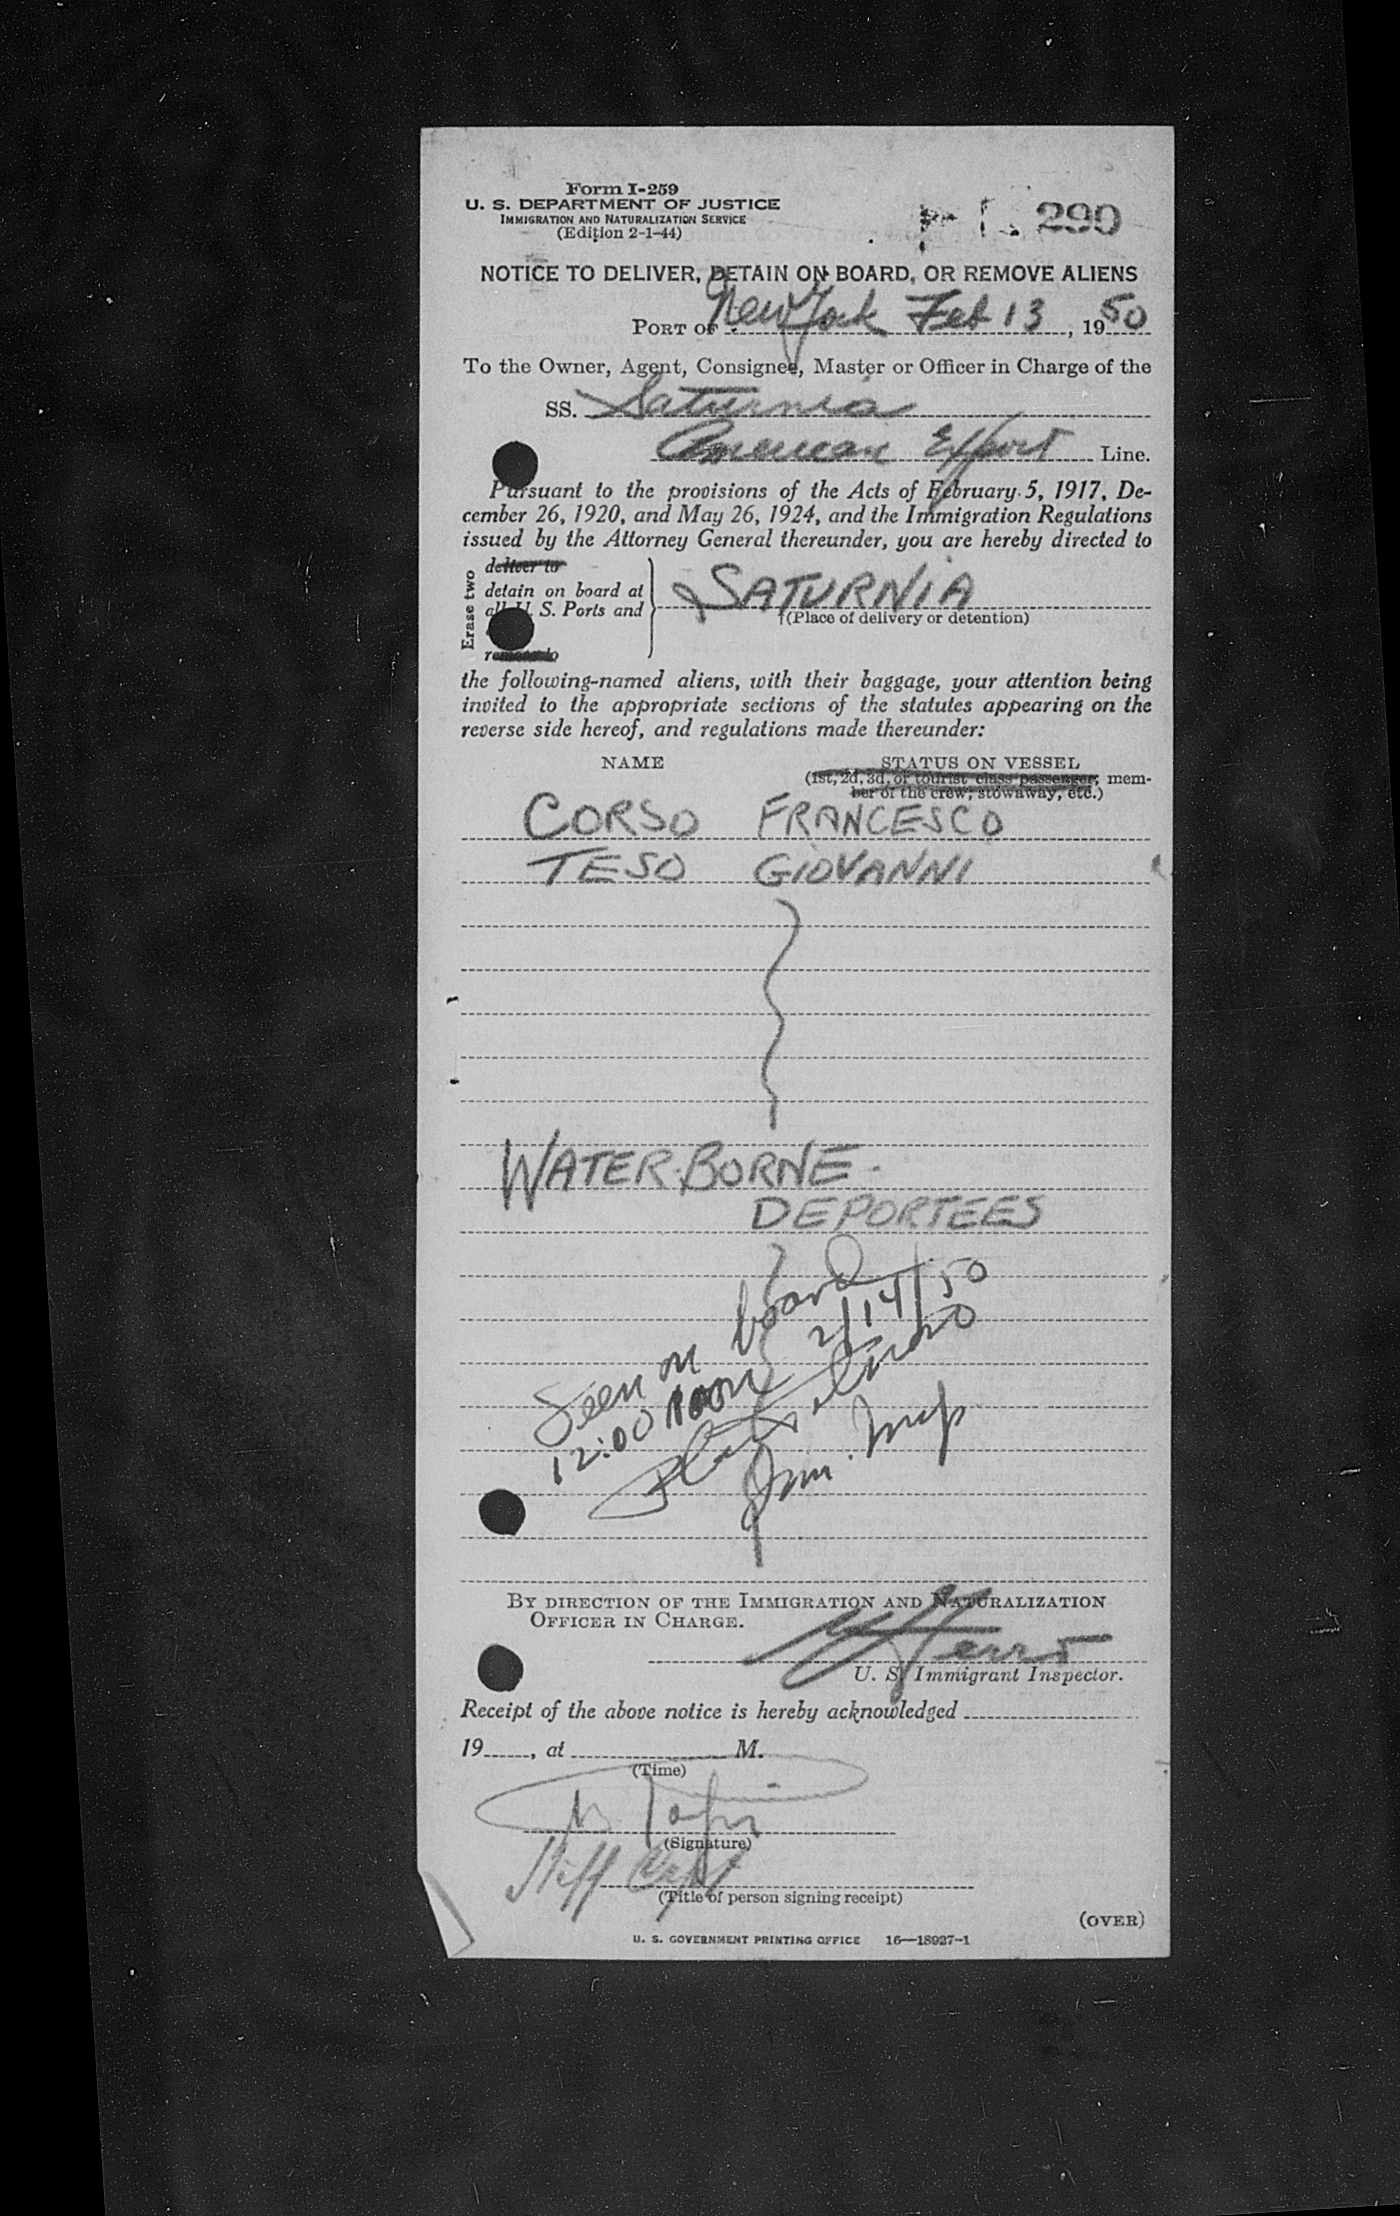 Form I-259
U. S. DEPARTMENT OF JUSTICE
IMMIGRATION AND NATURALIZATION SERVICE
(Edition 2-1-44)
290
NOTICE TO DELIVER, DETAIN ON BOARD, OR REMOVE ALIENS
PORT OF New York Feb 13, 1950
To the Owner, Agent, Consignee, Master or Officer in Charge of the
SS. Saturnia
American Export Line.
Pursuant to the provisions of the Acts of February 5, 1917, De-
cember 26, 1920, and May 26, 1924, and the Immigration Regulations
issued by the Attorney General thereunder, you are hereby directed to
Erase two
deliver to
detain on board at
all U. S. Ports and
remove to
SATURNIA
(Place of delivery or detention)
the following-named aliens, with their baggage, your attention being
invited to the appropriate sections of the statutes appearing on the
reverse side hereof, and regulations made thereunder:
NAME STATUS ON VESSEL
(1st, 2d, 3d, or tourist class passenger, mem-
ber of the crew, stowaway, etc.)
CORSO FRANCESCO
TESO GIOVANNI
WATER-BORNE-
DEPORTEES
Seen on board
12:00 noon 2/14/50
Imm. Insp.
BY DIRECTION OF THE IMMIGRATION AND NATURALIZATION
OFFICER IN CHARGE.
U. S. Immigrant Inspector.
Receipt of the above notice is hereby acknowledged
19, at M.
(Time)
(Signature)
Staff Capt
(Title of person signing receipt)
(OVER)
U. S. GOVERNMENT PRINTING OFFICE 16—18927-1